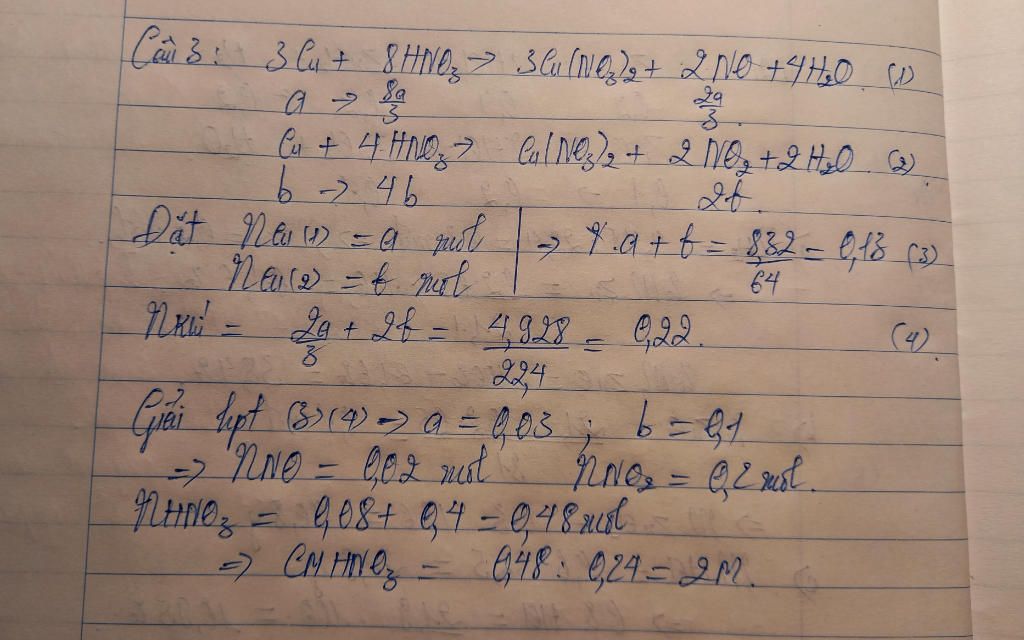 Câu 3: 3Cu + 8HNO3 → 3Cu(NO3)2 + 2NO + 4H2O (1)
a → 8a/3 2a/3
Cu + 4HNO3 → Cu(NO3)2 + 2NO2 + 2H2O (2)
b → 4b 2b
Đặt nCu(1) = a mol | → a + b = 8,32/64 = 0,13 (3)
nCu(2) = b mol
nkhí = 2a/3 + 2b = 4,928/22,4 = 0,22. (4)
Giải hpt (3)(4) → a = 0,03 ; b = 0,1
⇒ nNO = 0,02 mol nNO2 = 0,2 mol.
nHNO3 = 0,08 + 0,4 = 0,48 mol
⇒ CM HNO3 = 0,48 : 0,24 = 2M.